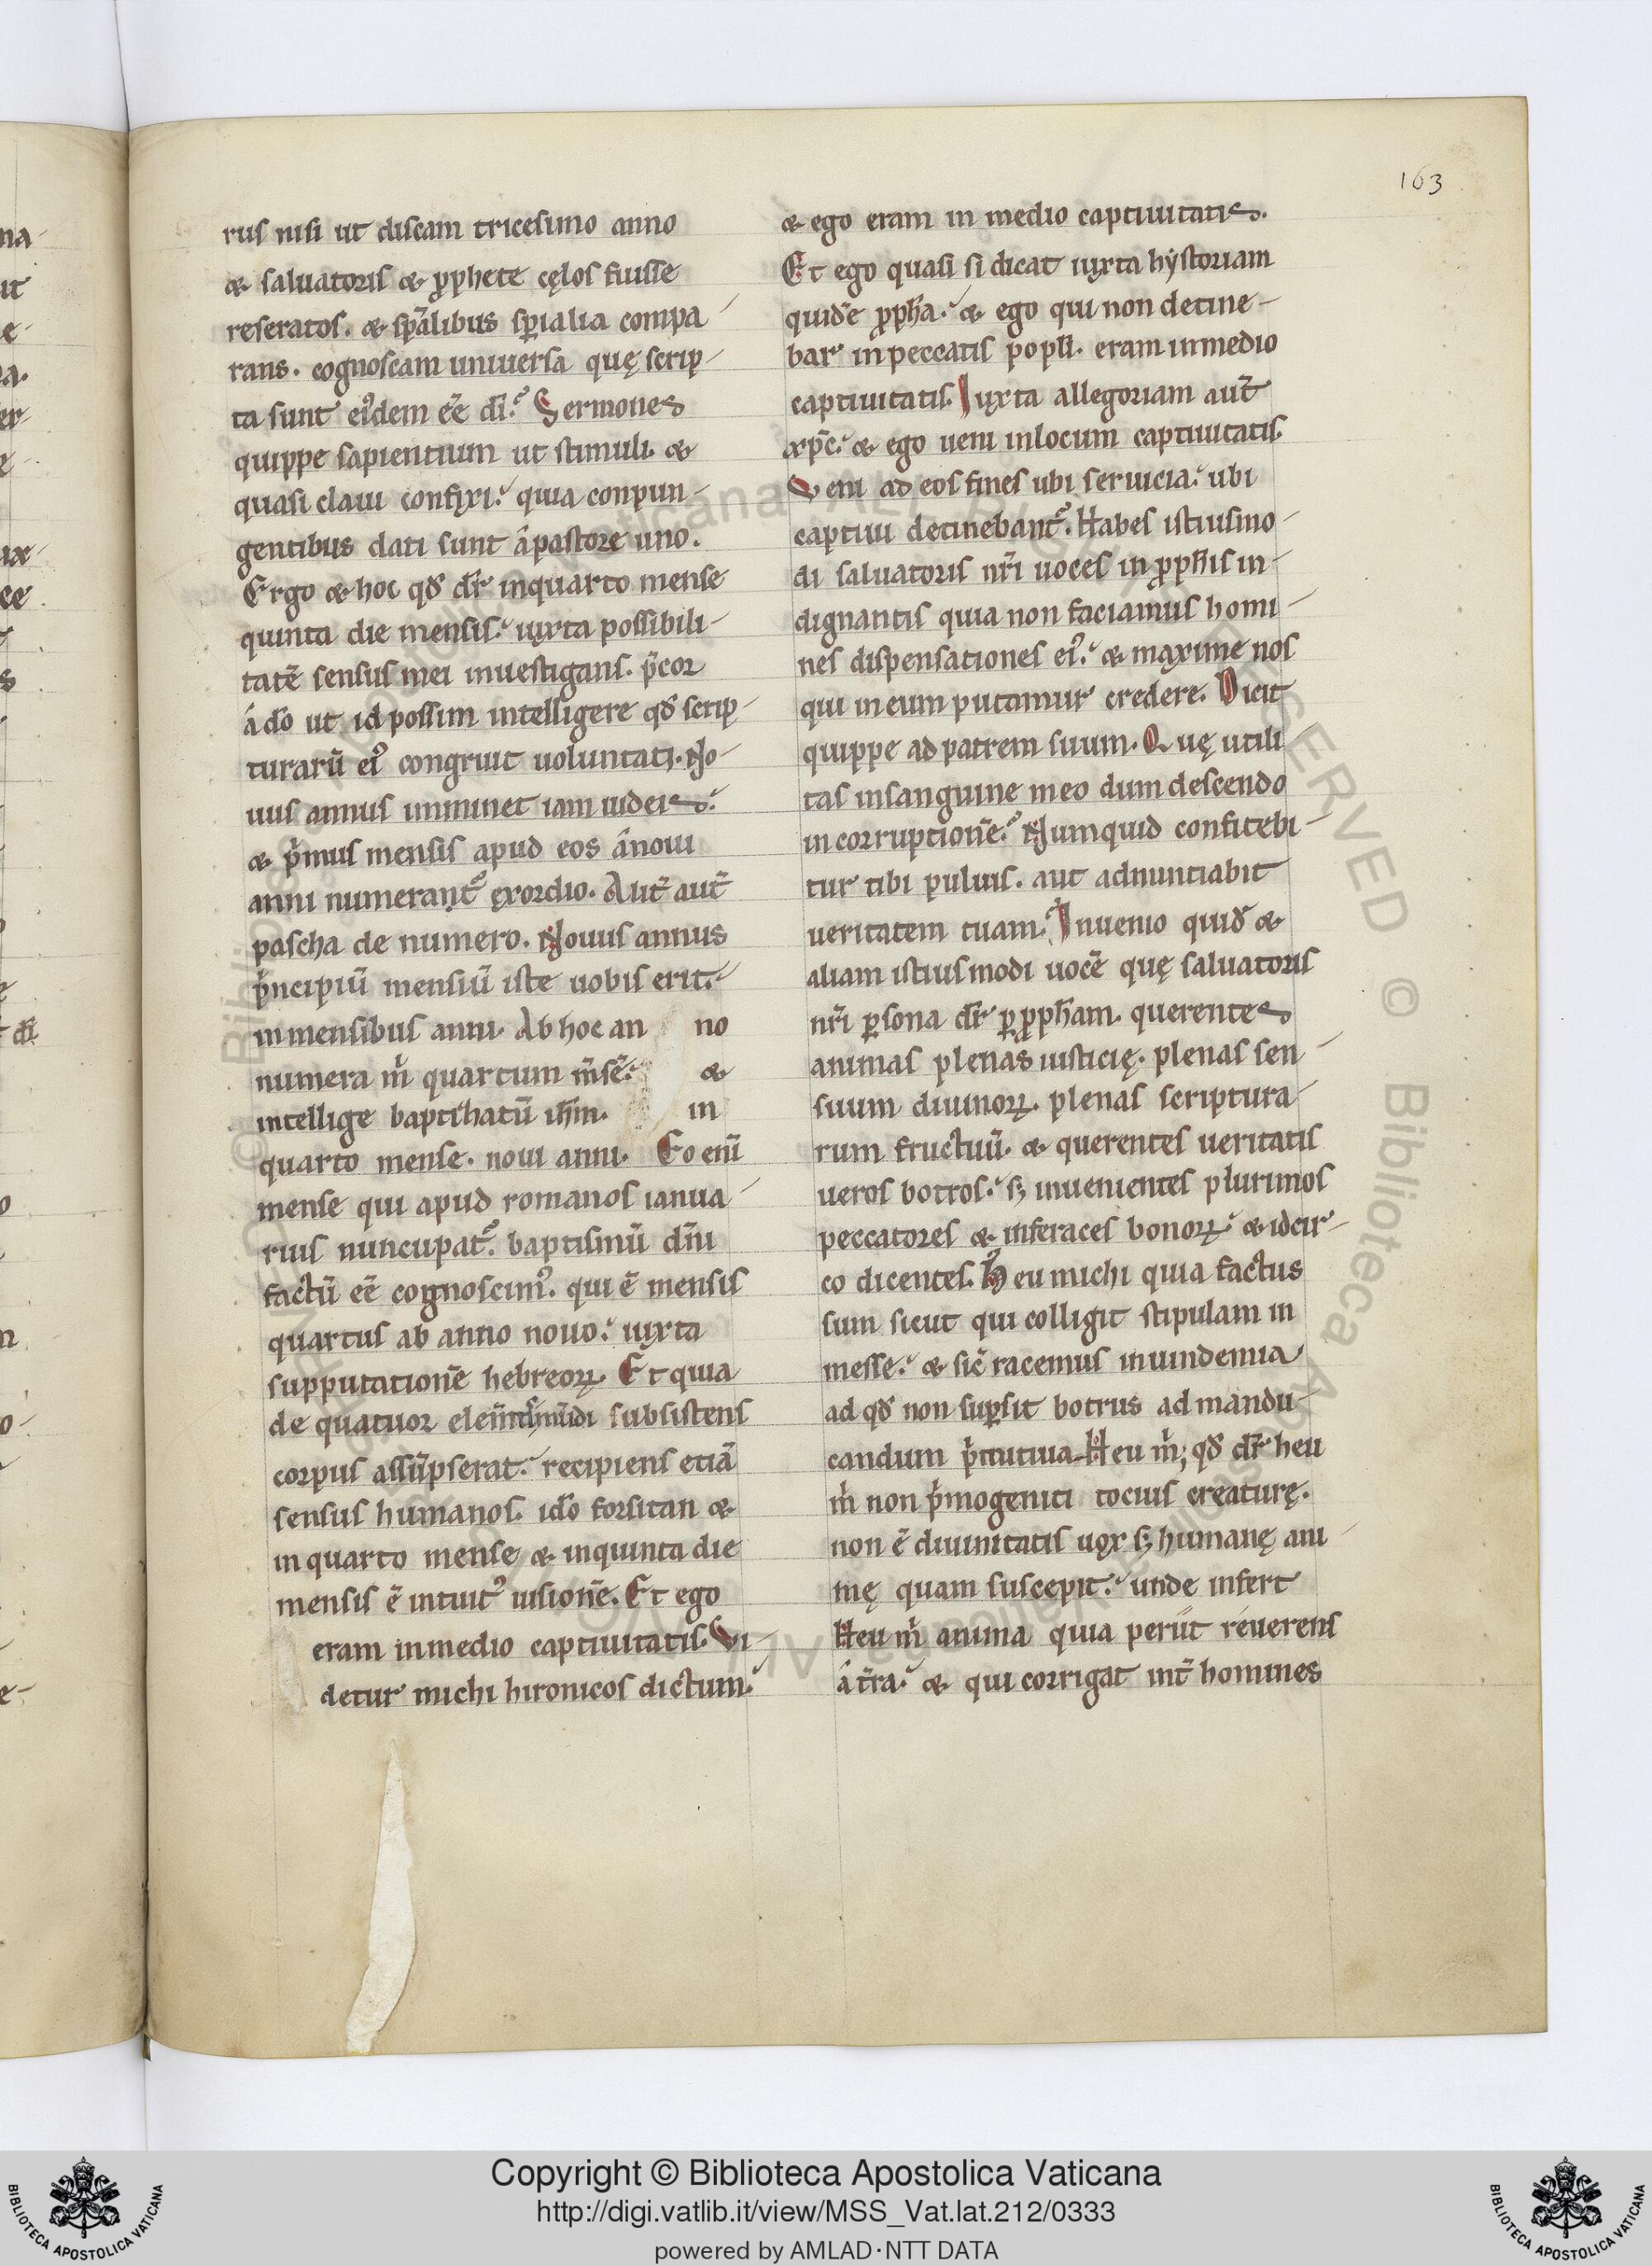 163
rus nisi ut discam tricesimo anno
& saluatoris & ꝓphete cęlos fuisse
reseratos. & sp̄alibus sp̄ialia compa-
rans. cognoscam uniuersa quę scrip-
ta sunt eiꝰdem eē dī. Sermones
quippe sapientium ut stimuli. & 
quasi claui confixi. quia conpun-
gentibus dati sunt a pastore uno.
Ergo & hoc qd̄ dr̄ in quarto mense
quinta die mensis. iuxta possibili-
tatē sensus mei inuestigans. p̄cor
a dō ut id possim intelligere qd̄ scrip-
turarū eiꝰ congruit uoluntati. No-
uus annus imminet iam iudeis.
& p̄mus mensis apud eos a noui
anni numerantᷣ exordio. Aut̄ aut̄
pascha de numero. Nouus annus
p̄ncipiū mensiū iste uobis erit.
in mensibus anni. Ab hoc an no
numera m̄ quartum m̄sē. &
intellige baptizatū ih̄m. in
quarto mense. noui anni. Eo eni̅
mense qui apud romanos ianua-
rius nuncupatᷣ. baptismū dn̄i
factū eē cognoscimꝰ. qui ē mensis
quartus ab anno nouo. iuxta
supputationē hebreoꝝ. Et quia
de quatuor elem̄tis mūdi subsistens
corpus assūpserat. recipiens etiā
sensus humanos. idō forsitan &
in quarto mense & in quinta die
mensis ē intuitꝰ uisionē. Et ego
eram in medio captiuitatis. Vi-
detur michi hironicos dictum.
& ego eram in medio captiuitatis.
Et ego quasi si dicat iuxta hystoriam
quidē ꝓph̄a. & ego qui non detine-
bar in peccatis popl̄i. eram in medio
captiuitatis. Iuxta allegoriam aut̄
xp̄c. & ego ueni in locum captiuitatis.
Veni ad eos fines ubi seruicia. ubi
captiui detinebantᷣ. Habes istiusmo-
di saluatoris nr̄i uoces in ꝓph̄is in-
dignantis quia non faciamus homi-
nes dispensationes eiꝰ. & maxime nos
qui in eum putamur credere. Dicit
quippe ad patrem suum. Quę utili
tas in sanguine meo dum descendo
in corruptionē. Numquid confitebi-
tur tibi puluis. aut adnuntiabit
ueritatem tuam. Inuenio quid̄ &
aliam istiusmodi uocē quę saluatoris
nr̄i ꝑsona dr̄ ꝑ ꝓph̄am. querentes
animas plenas iusticię. plenas sen-
suum diuinoꝝ. plenas scriptura-
rum fructuū. & querentes ueritatis
ueros botros. sꝫ inuenientes plurimos
peccatores & inferaces bonoꝝ & idcir-
co dicentes. Heu michi quia factus
sum sicut qui colligit stipulam in
messe. & sic̄ racemus in uindemia
ad qd̄ non suꝑsit botrus ad mandu-
candum p̄mitiua. Heu m̄; qd̄ dr̄ heu
m̄ non p̄mogeniti tocius creaturę.
non ē diuinitatis uox sꝫ humanę ani-
mę quam suscepit. unde infert
Heu m̄ anima quia periit reuerens
a tr̄a. & qui corrigat int̄ homines
Copyright © Biblioteca Apostolica Vaticana
http://digi.vatlib.it/view/MSS_Vat.lat.212/0333
powered by AMLAD·NTT DATA
BIBLIOTECA APOSTOLICA VATICANA
BIBLIOTECA APOSTOLICA VATICANA